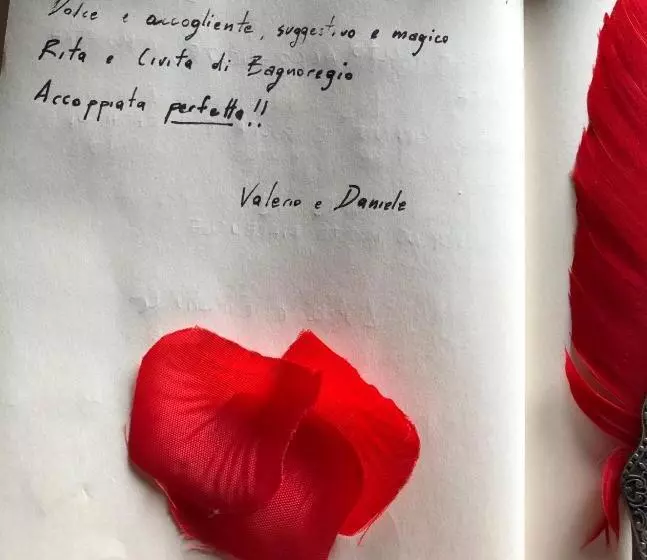 Dolce e accogliente, suggestivo e magico
Rita e Civita di Bagnoregio
Accoppiata perfetta!!
Valerio e Daniele